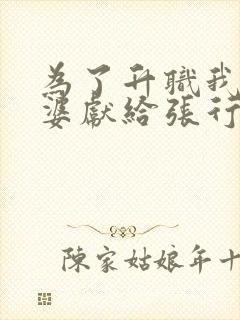 為了升職我
婆獻給張行
陳家姑娘年十